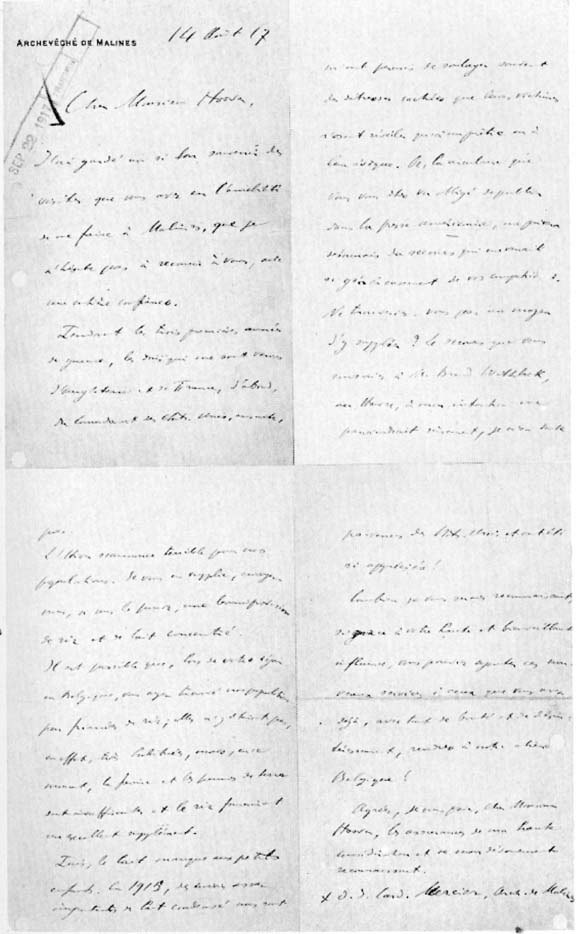 ARCHEVÊCHÉ DE MALINES
14 Août 17
SEP 22 1917
Cher Monsieur Hoover,
J'ai gardé un si bon souvenir des
visites que vous avez eu l'amabilité
de me faire à Malines, que je
n'hésite pas à recourir à vous, avec
une entière confiance.
Pendant les trois premières années
de guerre, les dons qui me sont venus
d'Angleterre et de France, d'abord,
du Canada et des États-Unis, ensuite,
m'ont permis de soulager souvent
des détresses cachées que leurs victimes
n'osent révéler qu'au prêtre ou à
leur évêque. Or, la
que
vous vous êtes vu obligé de publier
dans la presse américaine, me prive
désormais du secours qui me venait
si généreusement de vos compatriotes.
Ne trouveriez-vous pas un moyen
d'y suppléer? Le secours que vous
enverriez à Mr. Brand Whitlock,
au Havre, à mon intention me
parviendrait sûrement, je n'en doute
pas.
L'hiver s'annonce terrible pour nos
populations. Je vous en supplie, envoyez
nous, si vous le pouvez, une
de riz et de lait concentré
Il est possible que, lors de votre séjour
en Belgique, vous ayez trouvé nos populations
peu friandes de riz; elles n'y étaient pas,
en effet, très habituées, mais, en ce
moment, la farine et les pommes de terre
sont insuffisantes et le riz fournirait
un excellent supplément.
Puis, le lait manque aux petits
enfants. En 1915, des envois assez
importants de lait condensé nous sont
parvenus des États-Unis et ont été
si appréciés!
Combien je vous serais reconnaissant,
si grâce à votre haute et bienveillante
influence, vous pouviez ajouter ces nou-
veaux services à ceux que vous avez
déjà, avec tant de bonté et de désin-
téressement, rendus à notre chère
Belgique!
Agréez, je vous prie, Cher Monsieur
Hoover, les assurances de ma haute
considération et de mon dévouement
reconnaissant.
+ D. J. Card. Mercier, Arch. de Malines